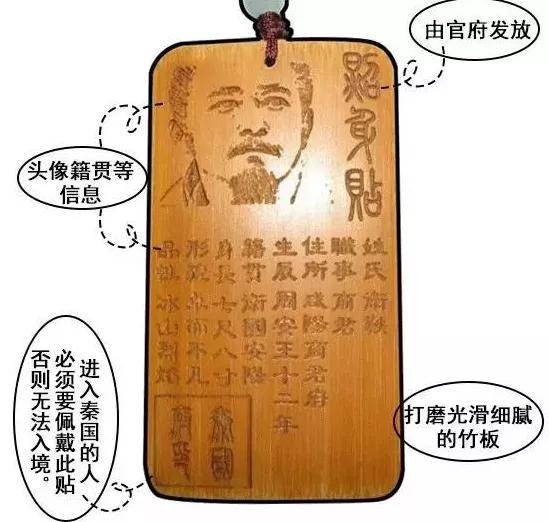 由官府发放
照身貼
头像籍贯等
信息
姓氏衛鞅
職事商君
住所咸陽商君府
生辰周安王十二年
籍貫衛國安陽
身長七尺八寸
形貌卓而不凡
品性冰山烈焰
进入秦国的人
必须要佩戴此贴
否则无法入境。
打磨光滑细腻
的竹板